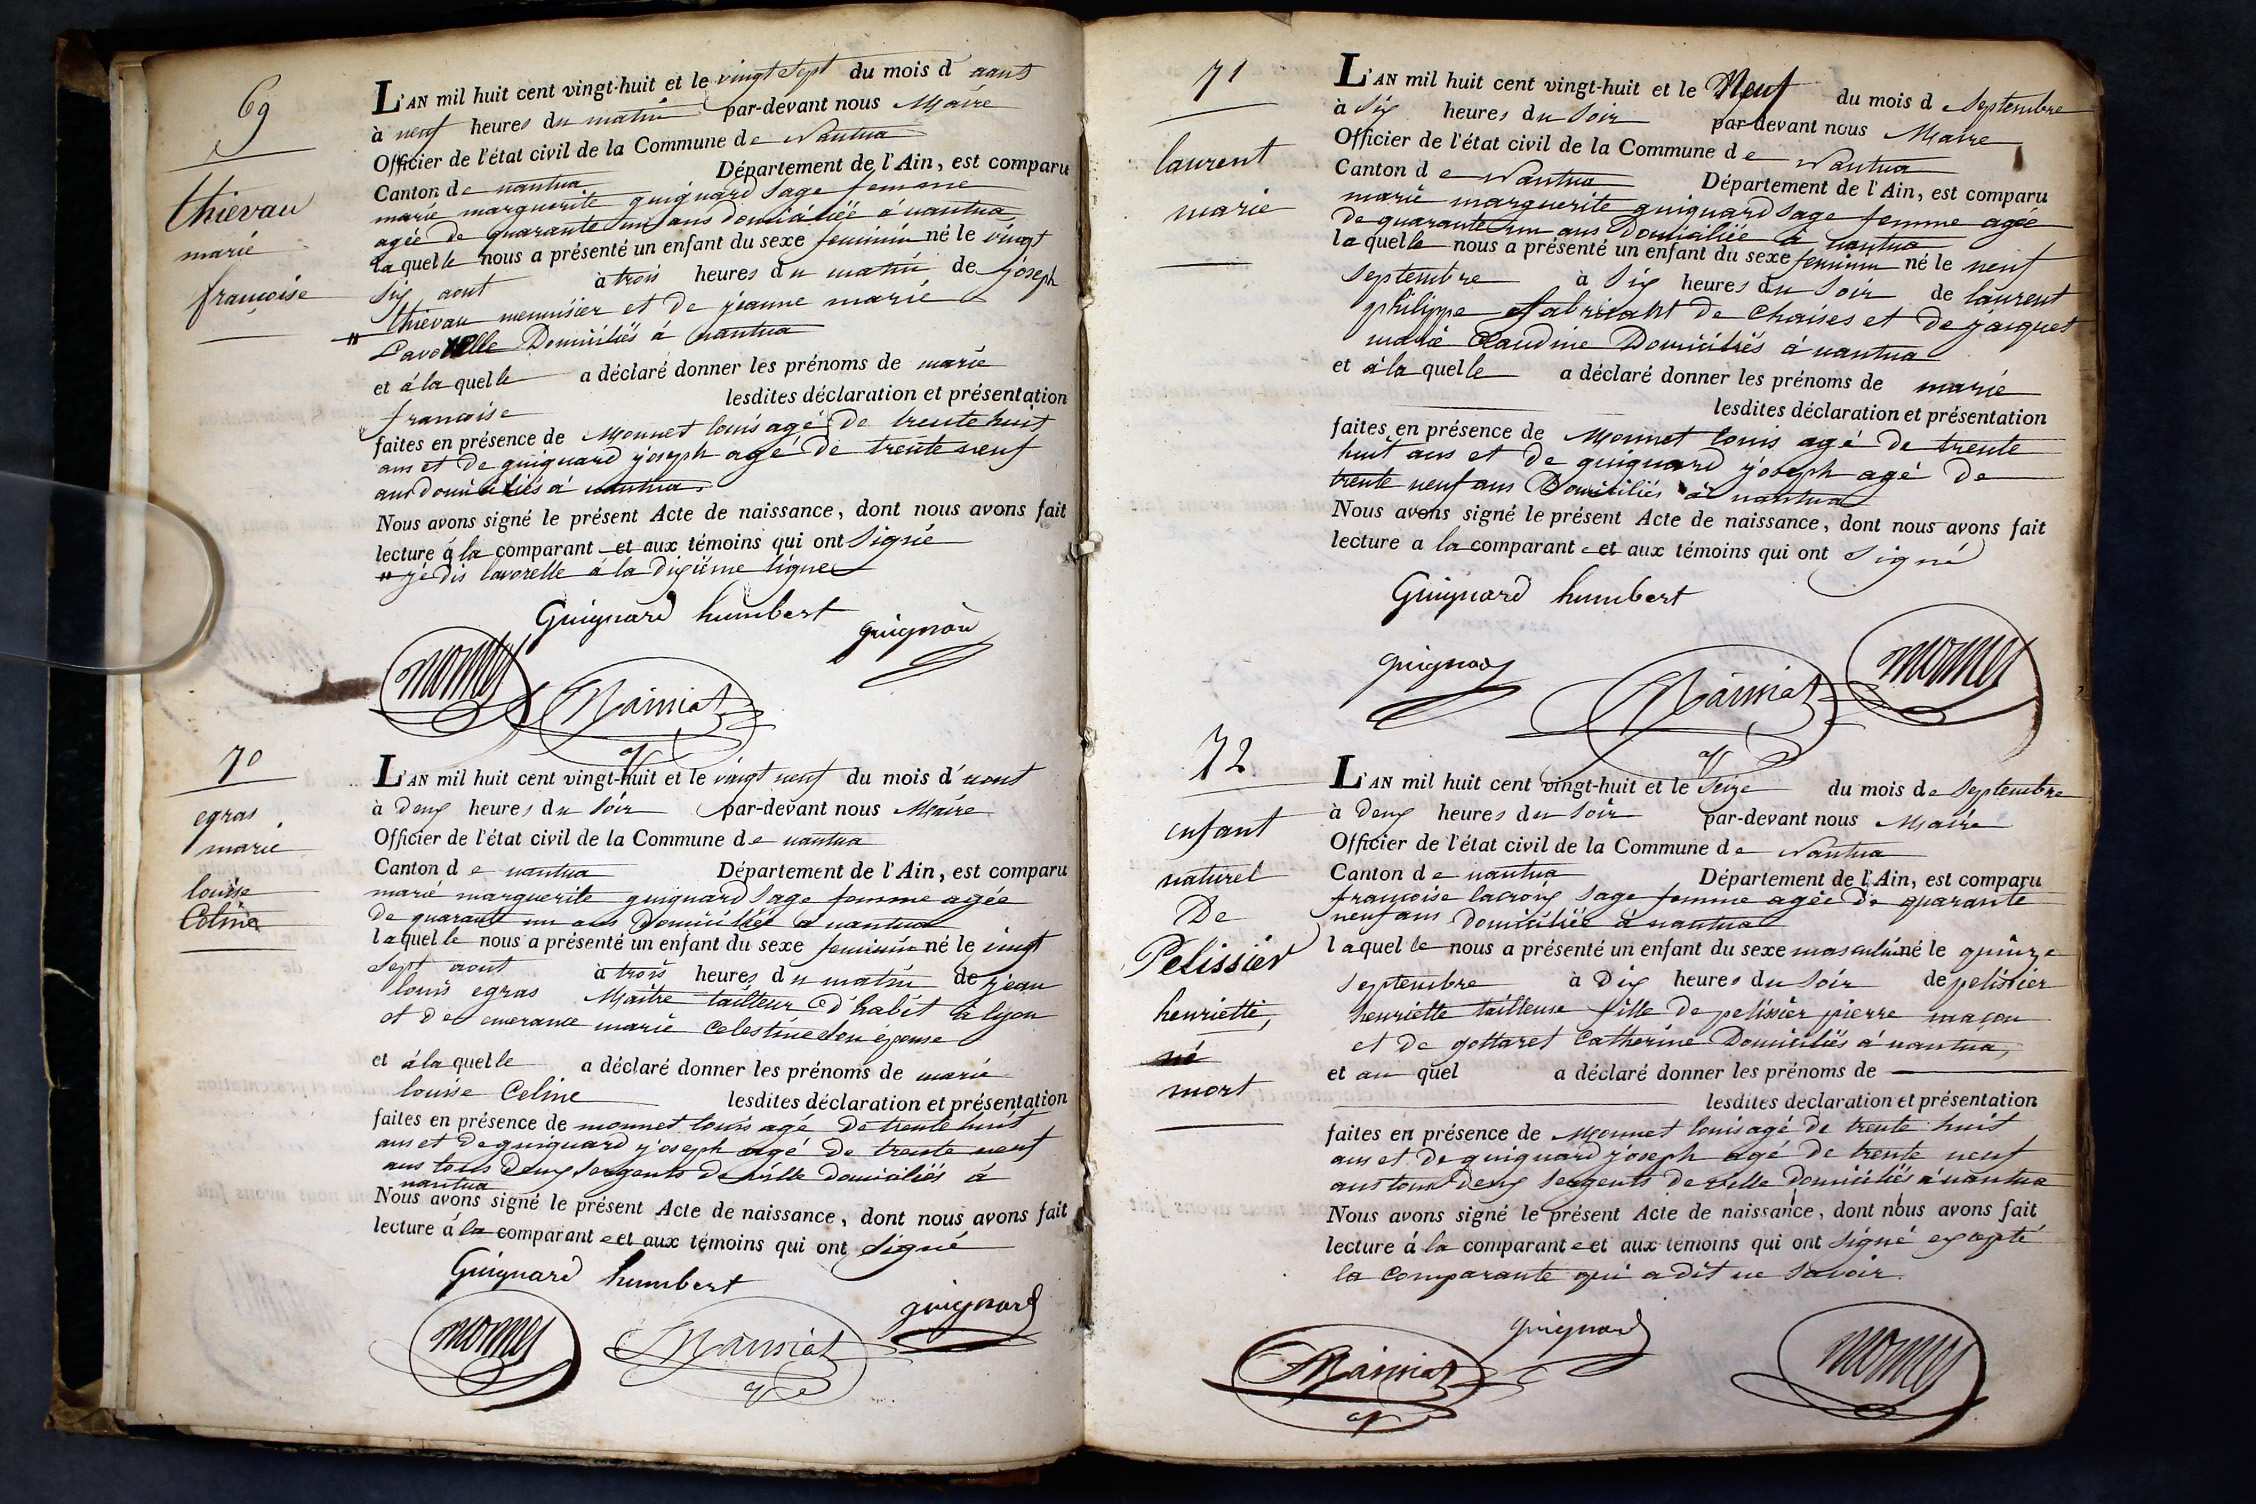 69
thievau
marie
françoise
L'AN mil huit cent vingt-huit et le vingt sept du mois d aout
à neuf heures du matin par-devant nous Maire
Officier de l'état civil de la Commune de Nantua
Canton de nantua Département de l'Ain, est comparu
marie marguerite guignard sage femme
agée de quarante un ans domiciliée à nantua
laquelle nous a présenté un enfant du sexe feminin né le vingt
six aout à trois heures du matin de joseph
thievau menuisier et de jeanne marie
" Lavorelle Domiciliés à nantua
et à laquelle a déclaré donner les prénoms de marie
françoise lesdites déclaration et présentation
faites en présence de Monnet louis agé de trente huit
ans et de guignard joseph agé de trente neuf
ans domiciliés à nantua.
Nous avons signé le présent Acte de naissance, dont nous avons fait
lecture à la comparante et aux témoins qui ont Signé
" je dis lavorelle à la dixième ligne
Guignard humbert
guignard
monnet
70
egras
marie
louise
Celine
L'AN mil huit cent vingt-huit et le vingt neuf du mois d'aout
à deux heures du soir par-devant nous Maire
Officier de l'état civil de la Commune de nantua
Canton de nantua Département de l'Ain, est comparu
marie marguerite guignard sage femme agée
de quarante un ans Domiciliée à nantua
laquelle nous a présenté un enfant du sexe feminin né le vingt
sept aout à trois heures du matin de jean
louis egras Maitre tailleur d'habit à lyon
et de emerance marie Celestine son épouse
et à laquelle a déclaré donner les prénoms de marie
louise Celine lesdites déclaration et présentation
faites en présence de monnet louis agé de trente huit
ans et de guignard joseph agé de trente neuf
ans tous deux sergents de ville domiciliés à
nantua
Nous avons signé le présent Acte de naissance, dont nous avons fait
lecture à la comparante et aux témoins qui ont signé
Guignard humbert
guignard
monnet
71
laurent
marie
L'AN mil huit cent vingt-huit et le Neuf du mois d Septembre
à Six heures du Soir par-devant nous Maire
Officier de l'état civil de la Commune de Nantua
Canton de Nantua Département de l'Ain, est comparu
marie marguerite guignard sage femme agée
de quarante un ans Domiciliée à nantua
laquelle nous a présenté un enfant du sexe feminin né le neuf
septembre à Six heures du Soir de laurent
philippe fabricant de Chaises et de jacquet
marie Claudine Domiciliés à nantua
et à laquelle a déclaré donner les prénoms de marie
lesdites déclaration et présentation
faites en présence de Monnet louis agé de trente
huit ans et de guignard joseph agé de
trente neuf ans Domiciliés à nantua
Nous avons signé le présent Acte de naissance, dont nous avons fait
lecture a la comparante et aux témoins qui ont Signé
Guignard humbert
guignard
monnet
72
enfant
naturel
De
Pelissier
henriette,
né
mort
L'AN mil huit cent vingt-huit et le Seize du mois de Septembre
à Deux heures du Soir par-devant nous Maire
Officier de l'état civil de la Commune de Nantua
Canton de nantua Département de l'Ain, est comparu
françoise lacroix sage femme agée de quarante
neuf ans domiciliée à nantua
laquelle nous a présenté un enfant du sexe masculin né le quinze
septembre à Dix heures du Soir de pelissier
henriette tailleuse fille de pelissier pierre maçon
et de gottaret Catherine Domiciliés à nantua,
et au quel a déclaré donner les prénoms de
lesdites déclaration et présentation
faites en présence de Monnet louis agé de trente huit
ans et de guignard joseph agé de trente neuf
ans tous Deux sergents de ville domiciliés à nantua
Nous avons signé le présent Acte de naissance, dont nous avons fait
lecture à la comparante et aux témoins qui ont signé excepté
la Comparante qui a dit ne Savoir.
guignard
monnet